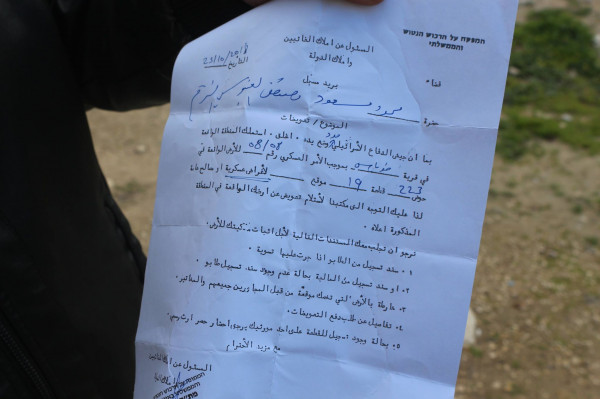 הממונה על הרכוש הנטוש
והממשלתי
المسئول عن املاك الغائبين
واملاك الدولة
التاريخ 23/10/
بريد مسجل
حضرة محمود مسعود مصطفى
الموضوع / تعويضات
بما ان جيش الدفاع الأسرائيلي وضع يده، اغلق، استملك المنطقة الواقعة
في قرية بموجب الأمر العسكري رقم 08/05 للأرض الواقعة في
حوض 223 قطعة 19 موقع لأغراض عسكرية او صالح عام
لذا عليك التوجه الى مكتبنا لأستلام تعويض عن ارضك الواقعة في المنطقة
المذكورة اعلاه.
نرجو ان تجلب معك المستندات التالية لأجل اثبات ملكيتك للأرض.
١. سند تسجيل من الطابو اذا جرت عليها تسوية.
٢. او سند تسجيل من المالية بحالة عدم وجود سند تسجيل طابو.
٣. خارطة بالأرض التي تملك موقعة من قبل المجاورين جميعهم والمخاتير.
٤. تفاصيل عن طلب دفع التعويضات.
٥. بحالة وجود تسجيل للقطعة على احد مورثيك يرجى احضار حصر ارث رسمي.
مع مزيد الأحترام
المسئول عن املاك الغائبين